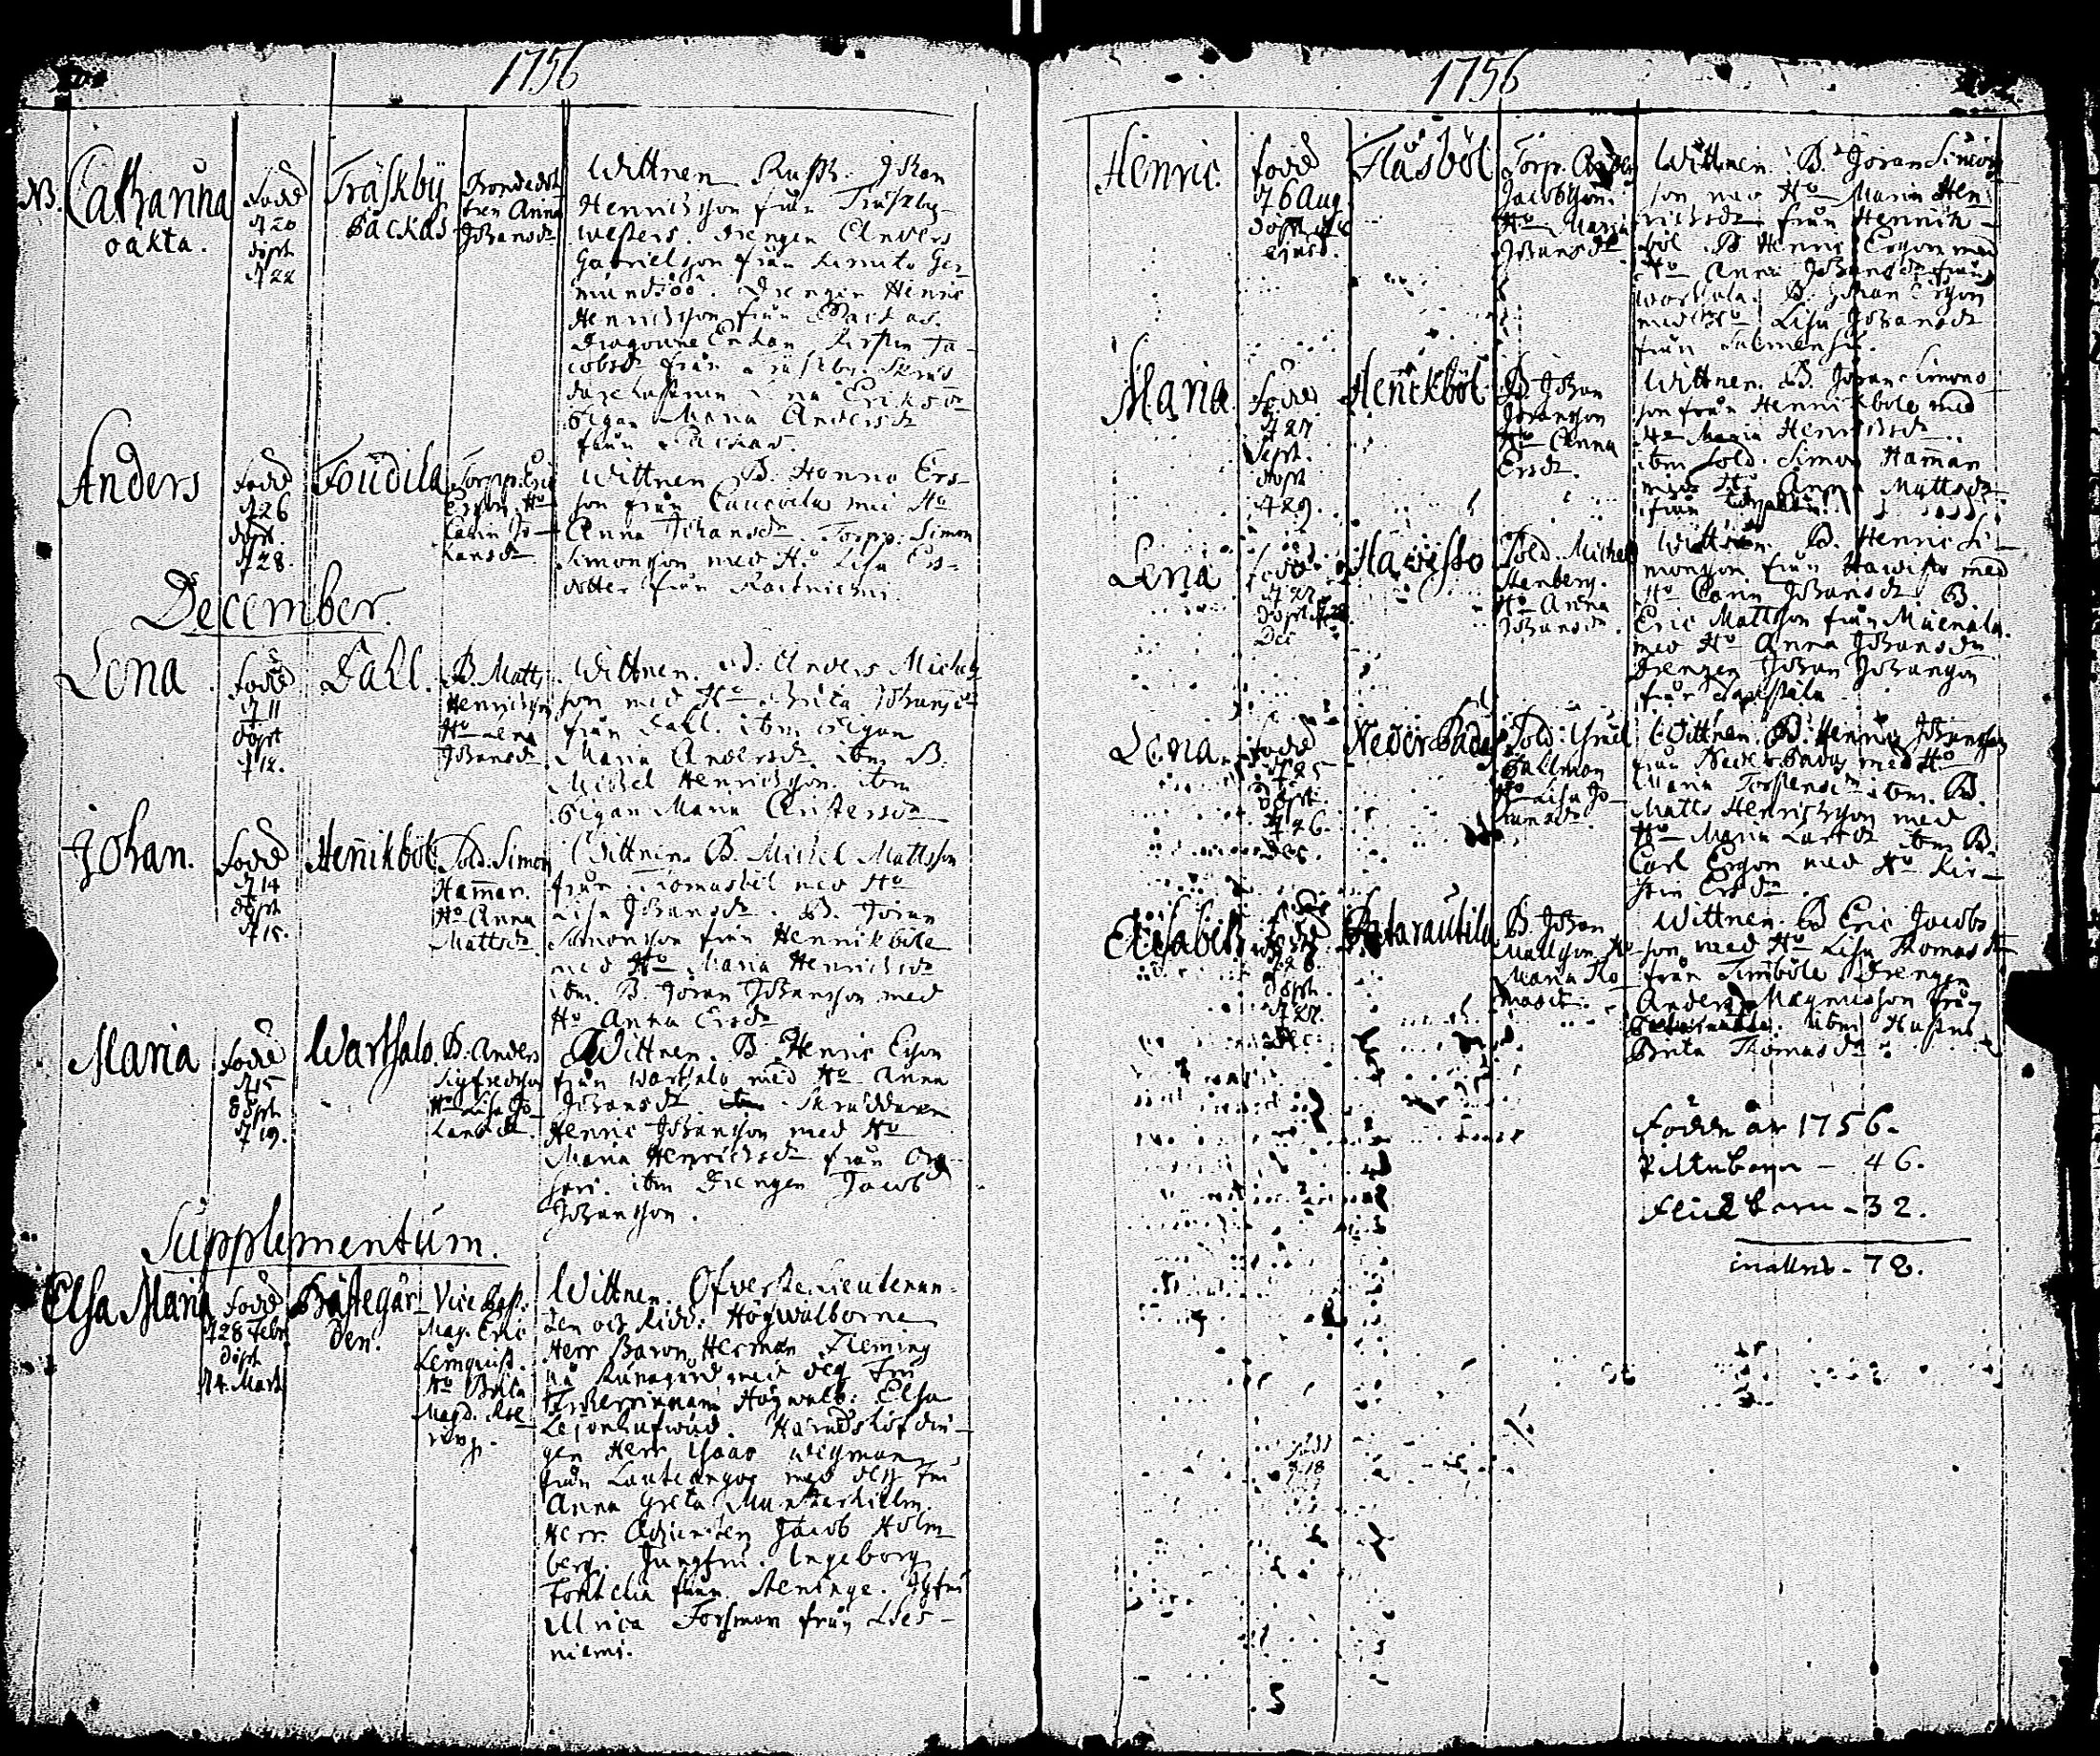 1756
NB. Catharina
oäkta.
född
d. 20
döpt
d. 22
Träskby
Backas
tren Anna
Johansdr
Wittnen. Rusth. Johan
Henrichsson från Träskby
westers. Drengen Anders
Gabrielsson från Kimito
Drengen Henric
Henrichsson från Backas.
Dragoune Enkan Kirstin Ja-
cobsdr från Träskby.
Eriksdr
Pigan Maria Andersdr
från Backas.
Anders
född
d. 26
döpt.
d. 28.
Toudila
Torpp. Eric
Ersson. Ho
Carin Jo-
hansdr
Wittnen B. Hanns Ers-
son från med Ho
Anna Johansdr. Torpp. Simon
Simonsson med Ho. Lisa Ers-
dotter från
December.
Lena
född
d. 11
döpt
d. 12.
Dahl.
B. Matts
Henrichsson
Ho Lena
Johansdr
Wittnen. B. Anders Michels
son med Ho Brita Johansdr
från Dahl. ibm Pigan
Maria Andersdr ibm B.
Michel Henrichsson ibm
Pigan Maria Christersdr
Johan.
född
d. 14
döpt
d. 15.
Hen̄ikböl
Sold. Simon
Ham̄ar.
Ho Anna
Mattsdr
Wittnen. B. Michel Mattsson
från Thomasböl med Ho
Lisa Johansdr. B. Jöran
Simonsson från Hennikböle
med Ho Maria Henrichsdr
ibm. B. Jöran Johansson med
Ho Anna Ersdr
Maria
född
d. 15
döpt
d. 19.
Wartsalo.
B. Anders
Sigfredsson
Ho Lisa Jo-
hansdr.
Wittnen. B. Henric Ersson
från Wartsalo med Ho Anna
Johansdr ibm Skräddaren
Henric Johansson med Ho
Maria Henrichsdr från
ibm Drengen Jacob
Johansson.
Supplementum.
Elsa Maria
född
d. 28 Febr.
döpt
d. 4. Mart.
Prästegår-
den.
Vice Past.
Mag. Eric
Lemquist.
Ho Brita
Magd.
Wittnen. Öfverste Lieutenan-
ten och Ridd. Högwälborne
Herr Baron Herman Fleming
på med deß Fru
Friherrinnan Högwälb: Elsa
Lejonhufwud. Häradshöfdin-
gen Herr Isaac Wegman
från med deß Fru
Anna Greta Munsterhielm.
Herr Adjuncten Jacob Holm-
berg. Jungfru. Ingeborg
från Meninge. Jgfru
Ulrica Forsman från
niemi.
1756
Henric.
född
d. 6 Aug
döpt
Flåsböl
Torp. Anders
Jacobsson.
Ho Maria
Johansdr
Wittnen. B. Jöran Simons
son med Ho Maria Hen-
richsdr från Hennik-
böl. B. Henric Ersson med
Ho Anna Johansdr från
Wartsala. B. Johan Ersson
med Ho Lisa Johansdr
från
Maria
född
d. 27
Sept.
döpt
d. 29.
Hen̄ikböl
B. Johan
Johansson
Ho Anna
Ersdr.
Wittnen. B. Jöran Simons
son från Hennikböle med
Ho Maria Henrichsdr.
ibm Sold. Simon Ham̄ar
med Ho Anna Mattsdr
från
Lena
född
d. 27
döpt d. 28
Dec
Hawisto
Sold. Michel
Stenberg.
Ho Anna
Johansdr.
Wittnen. B. Henric Si-
monsson från Hawisto med
Ho Carin Johansdr. B.
Eric Mattsson från
med Ho Anna Johansdr
Drengen Johan Johansson
från
Lena.
född
d. 25
döpt.
d. 26.
Dec.
Nederpada
Sold: Israel
Ho Lisa Jo-
hansdr.
Wittnen. B. Henric Johansson
från Nederpada med Ho
Maria ibm. B.
Matts Henrichsson med
Ho Maria Larsdr ibm B.
Carl Ersson med Ho Kir-
stin Ersdr.
Elisabeth
född
d. 26.
döpt.
d. 27.
Dec.
B. Johan
Mattsson Ho
Maria Tho-
masdr.
Wittnen. B Eric Jacobs
son med Ho Lisa Thomasdr
från Timböle Drengen
Anders Magnusson från
ibm Hustru
Brita Thomasdr.
Födde år 1756.
Piltebarn - 46.
Flickbarn - 32.
inalles - 78.